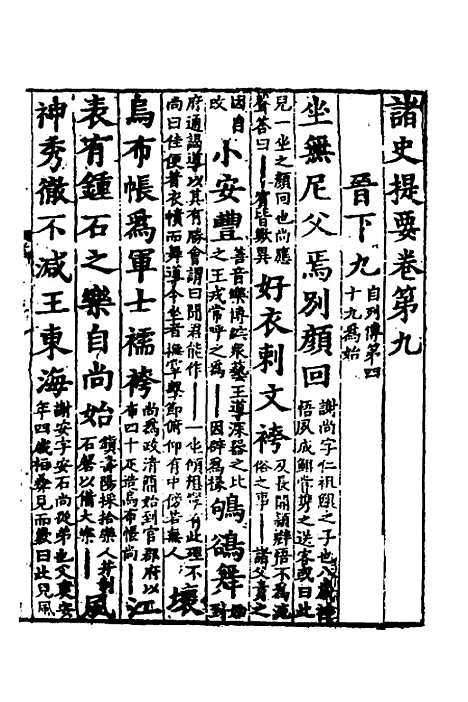 諸史提要卷第九
晉下九自列傳第四十九爲始
坐無尼父焉別顏回謝尚字仁祖鯤之子也八歲神悟夙成鯤嘗攜之送客或曰此
兒一坐之顏回也尚應聲答曰——賓皆歎異好衣刺文袴及長開穎辯悟不爲流俗之事——諸父責之
因自改小安豐善音樂博綜衆藝王導深器之比之王戎常呼之爲——因辟爲掾鴝鵒舞始到
府通謁導以其有勝會謂曰聞君能作——一坐傾想寧有此理不尚曰佳便著衣幘而舞導令坐者撫掌擊節俯仰有中傍若無人壞
烏布帳爲軍士襦袴尚爲政清簡始到官郡府以布四十疋造烏布帳尚——江
表有鍾石之樂自尚始鎮壽陽採拾樂人并制石磬以備太樂——風
神秀徹不減王東海謝安字安石尚從弟也父裒安年四歲桓彝見而歎曰此兒風